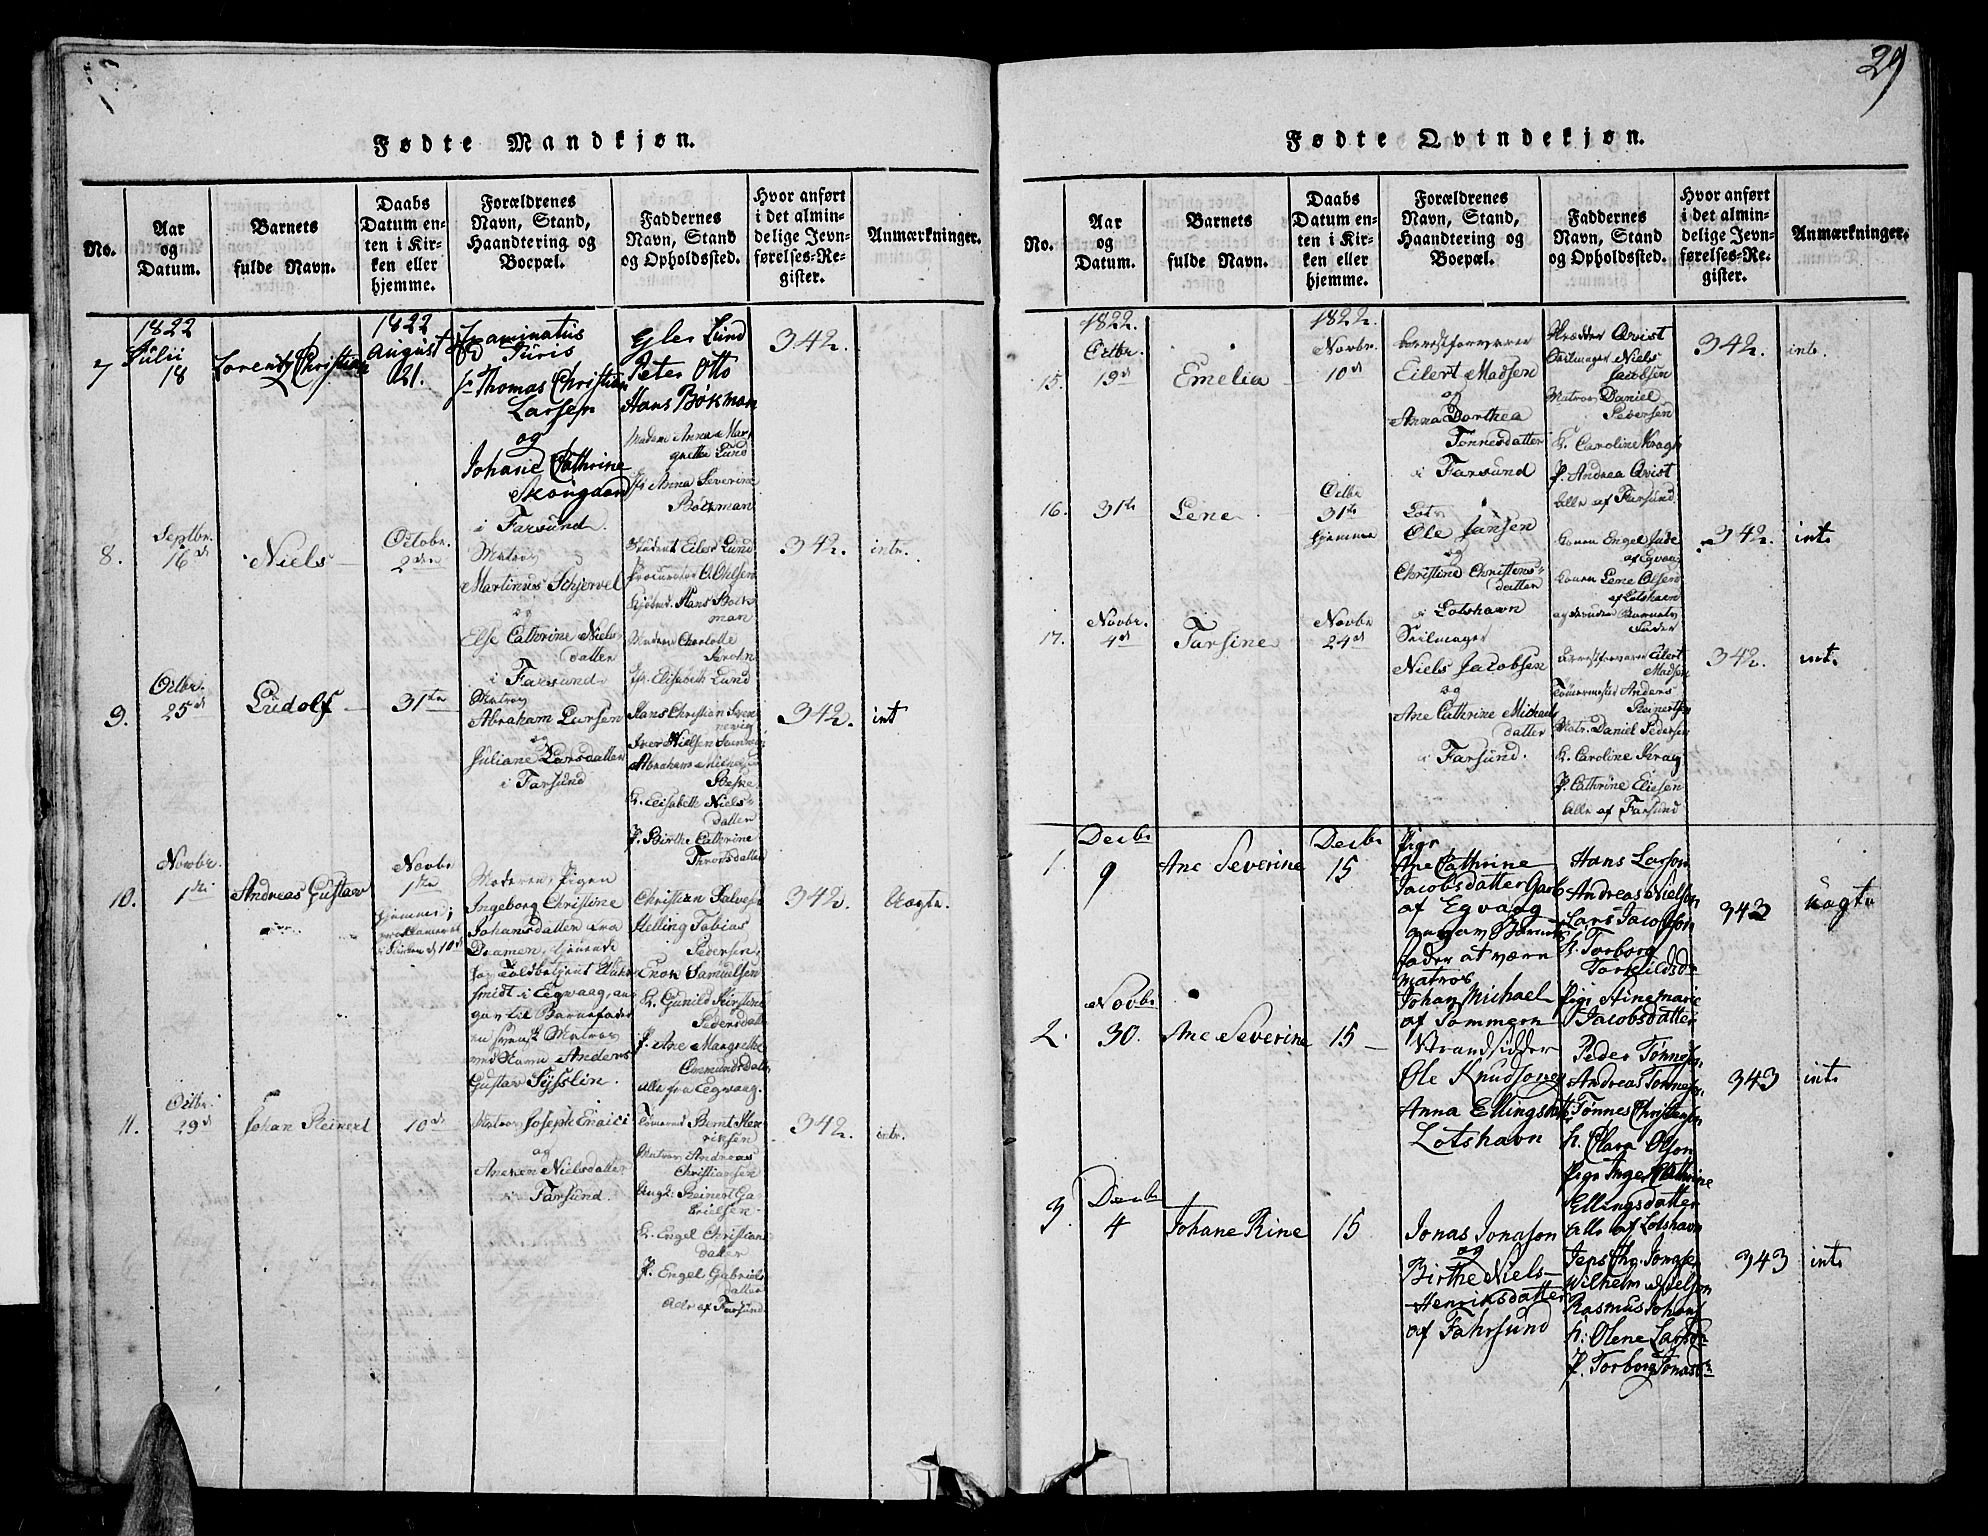 29
Fødte Mandkjøn.
No.
Aar
og
Datum.
Barnets
fulde Navn.
Daabs
Datum en-
ten i Kir-
ken eller
hjemme.
Forældrenes
Navn, Stand,
Haandtering og
Boepæl.
Faddernes
Navn, Stand
og Opholdssted.
Hvor anført
i det almin-
delige Jevn-
førelses-Re-
gister.
Anmærkninger.
7
1822
Julii
18
Lorentz Christian
1822
August
21.
Examinatus
Juris
Hr Thomas Christian
Larsen
og
Johane Cathrine
Skougaard
i Farsund.
Gler Lund
Peter Otto
Hans Bökman
Madam Anna Mar-
grethe Lund
Jfr Anna Severine
Bökman
342.
8.
Septbr.
16de
Niels
Octobr.
2den
Matros
Martinus Schjervel
og
Else Cathrine Niels-
datter
i Farsund
Student Eiler Lund
Procurator
Kjöbmd. Hans Bök-
man
Madam Charlotte
Jfr. Elisabeth Lund
342.
intr.
9.
Octbr.
25de
Ludolf
31te
Matros
Abraham Larsen
og
Juliane Larsdatter
i Farsund
Hans Christian Sven-
nevig
Iver Nielsen
Abraham
K. Elisabeth Niels-
datter
P. Birthe Cathrine
Thronsdatter
342.
int
10.
Novbr.
1ste
Andreas Gustav
Novbr
1ste
hjemme;
i Kirken d 10de
Moderen, Pigen
Ingeborg Christine
Johansdatter fra
Dramen, tjenende
for Toldbetjent
Smidt i Egvaag, an-
gav til Barnefader
en svensk Matros
ved Navn Anders
Gustav Sysslin.
Christian Salvesen
Helling Tobias
Pedersen
Enok Samuelsen
K. Gunild Kirstine
Pedersdatter
P. Ane Margrethe
Ommundsdatter
alle fra Egvaag.
342.
Uægte.
11.
Octbr.
29de
Johan Reinert
10de
Matros Joseph Enaici
og
Aneken Nielsdatter
i Farsund.
Tömermd Bernt Hen-
riksen
Matros Andreas
Christiansen
Ungk: Reinert Ga-
brielsen
K. Engel Christians
datter
P. Engel Gabriels
datter
Alle af Farsund
342.
intr.
Fødte Qvindekjøn.
No.
Aar
og
Datum.
Barnets
fulde Navn.
Daabs
Datum en-
ten i Kir-
ken eller
hjemme.
Forældrenes
Navn, Stand,
Haandtering og
Boepæl.
Faddernes
Navn, Stand
og Opholdssted.
Hvor anført
i det almin-
delige Jevn-
førelses-Re-
gister.
Anmærkninger.
15.
1822.
Octbr.
19de
Emelia
1822.
Novbr.
10de
Arrestforvarer
Eilert Madsen
og
Anna Dorthea
Tönnesdatter
i Farsund
Skrædder Qvist
Seilmager Niels
Jacobsen
Matros Daniel
Pedersen
K. Caroline Krag
P. Andrea Qvist
Alle af Farsund
342.
int.
16.
31te
Lene
Octbr
31te
hjemme
Lots
Ole Jansen
og
Christine Christens-
datter
i Lotshavn
Konen Engel
af Egvaag
Konen Lene Olsen
af Lotshavn
og desuden Barnets
Fader
342.
int.
17.
Novbr.
4de
Tarsine
Novbr
24de
Seilmager
Niels Jacobsen
og
Ane Cathrine Michaels
datter
i Farsund.
Arrestforvarer Eilert
Madsen
Tömermester Anders
Reinertsen
Matr. Daniel Pedersen
K. Caroline Krag
P. Cathrine Eliesen
Alle af Farsund
342.
int.
1.
Decbr
9
Ane Severine
Decbr
15
Pige
Ane Cathrine
Jacobsdatter
af Egvaag
angav Barnets
fader at være
Matros
Johan Michael
af Tommern
Hans Larson
Andreas Nielson
Lars Jacobson
K. Torborg
Torkildsdr
Pige Stine Marie
Jacobsdatter
343
Uægte
2.
Novbr
30.
Ane Severine
15
Strandsidder
Ole Knudson og
Anna Ellingsdatter
Lotshavn
Peder Tönnesen
Andreas Tönnesen
Tönnes Christensen
K. Clara Olson
Pige Inger Cathrine
Ellingsdatter
alle af Lotshavn
343
int.
3.
Decbr
4
Johane Rine
15
Jonas Jonason
og
Birthe Niels-
Henriksdatter
af Fahrsund
Jens Chr. Jonsen
Wilhelm Nielson
Rasmus Johans
K. Olene Larson
P. Torborg Jonasdr
343
int.